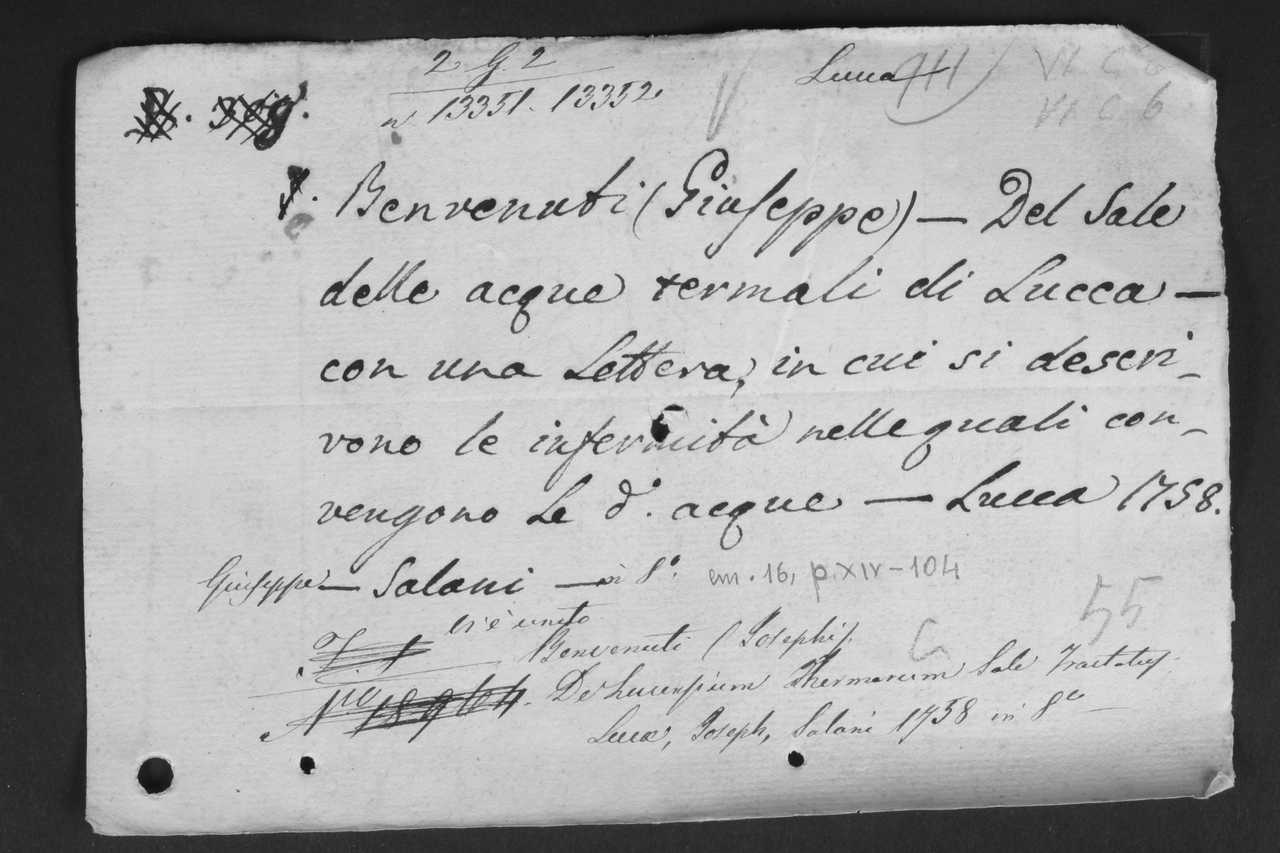 2 G. 2 Lucca 941 VI C 6
n. 13351. 13352. VI C 6
Benvenuti (Giuseppe) — Del Sale
delle acque termali di Lucca —
con una Lettera, in cui si descri-
vono le infermità nelle quali con-
vengono le d.e acque — Lucca 1758.
Giuseppe — Salani — in 8.o em. 16, p. XIV-104
vi è unito 55
Benvenuti (Josephi) G
N.o 18964. De Lucensium Thermarum Sale Tractatus.
Lucæ, Joseph, Salani 1758 in 8.o